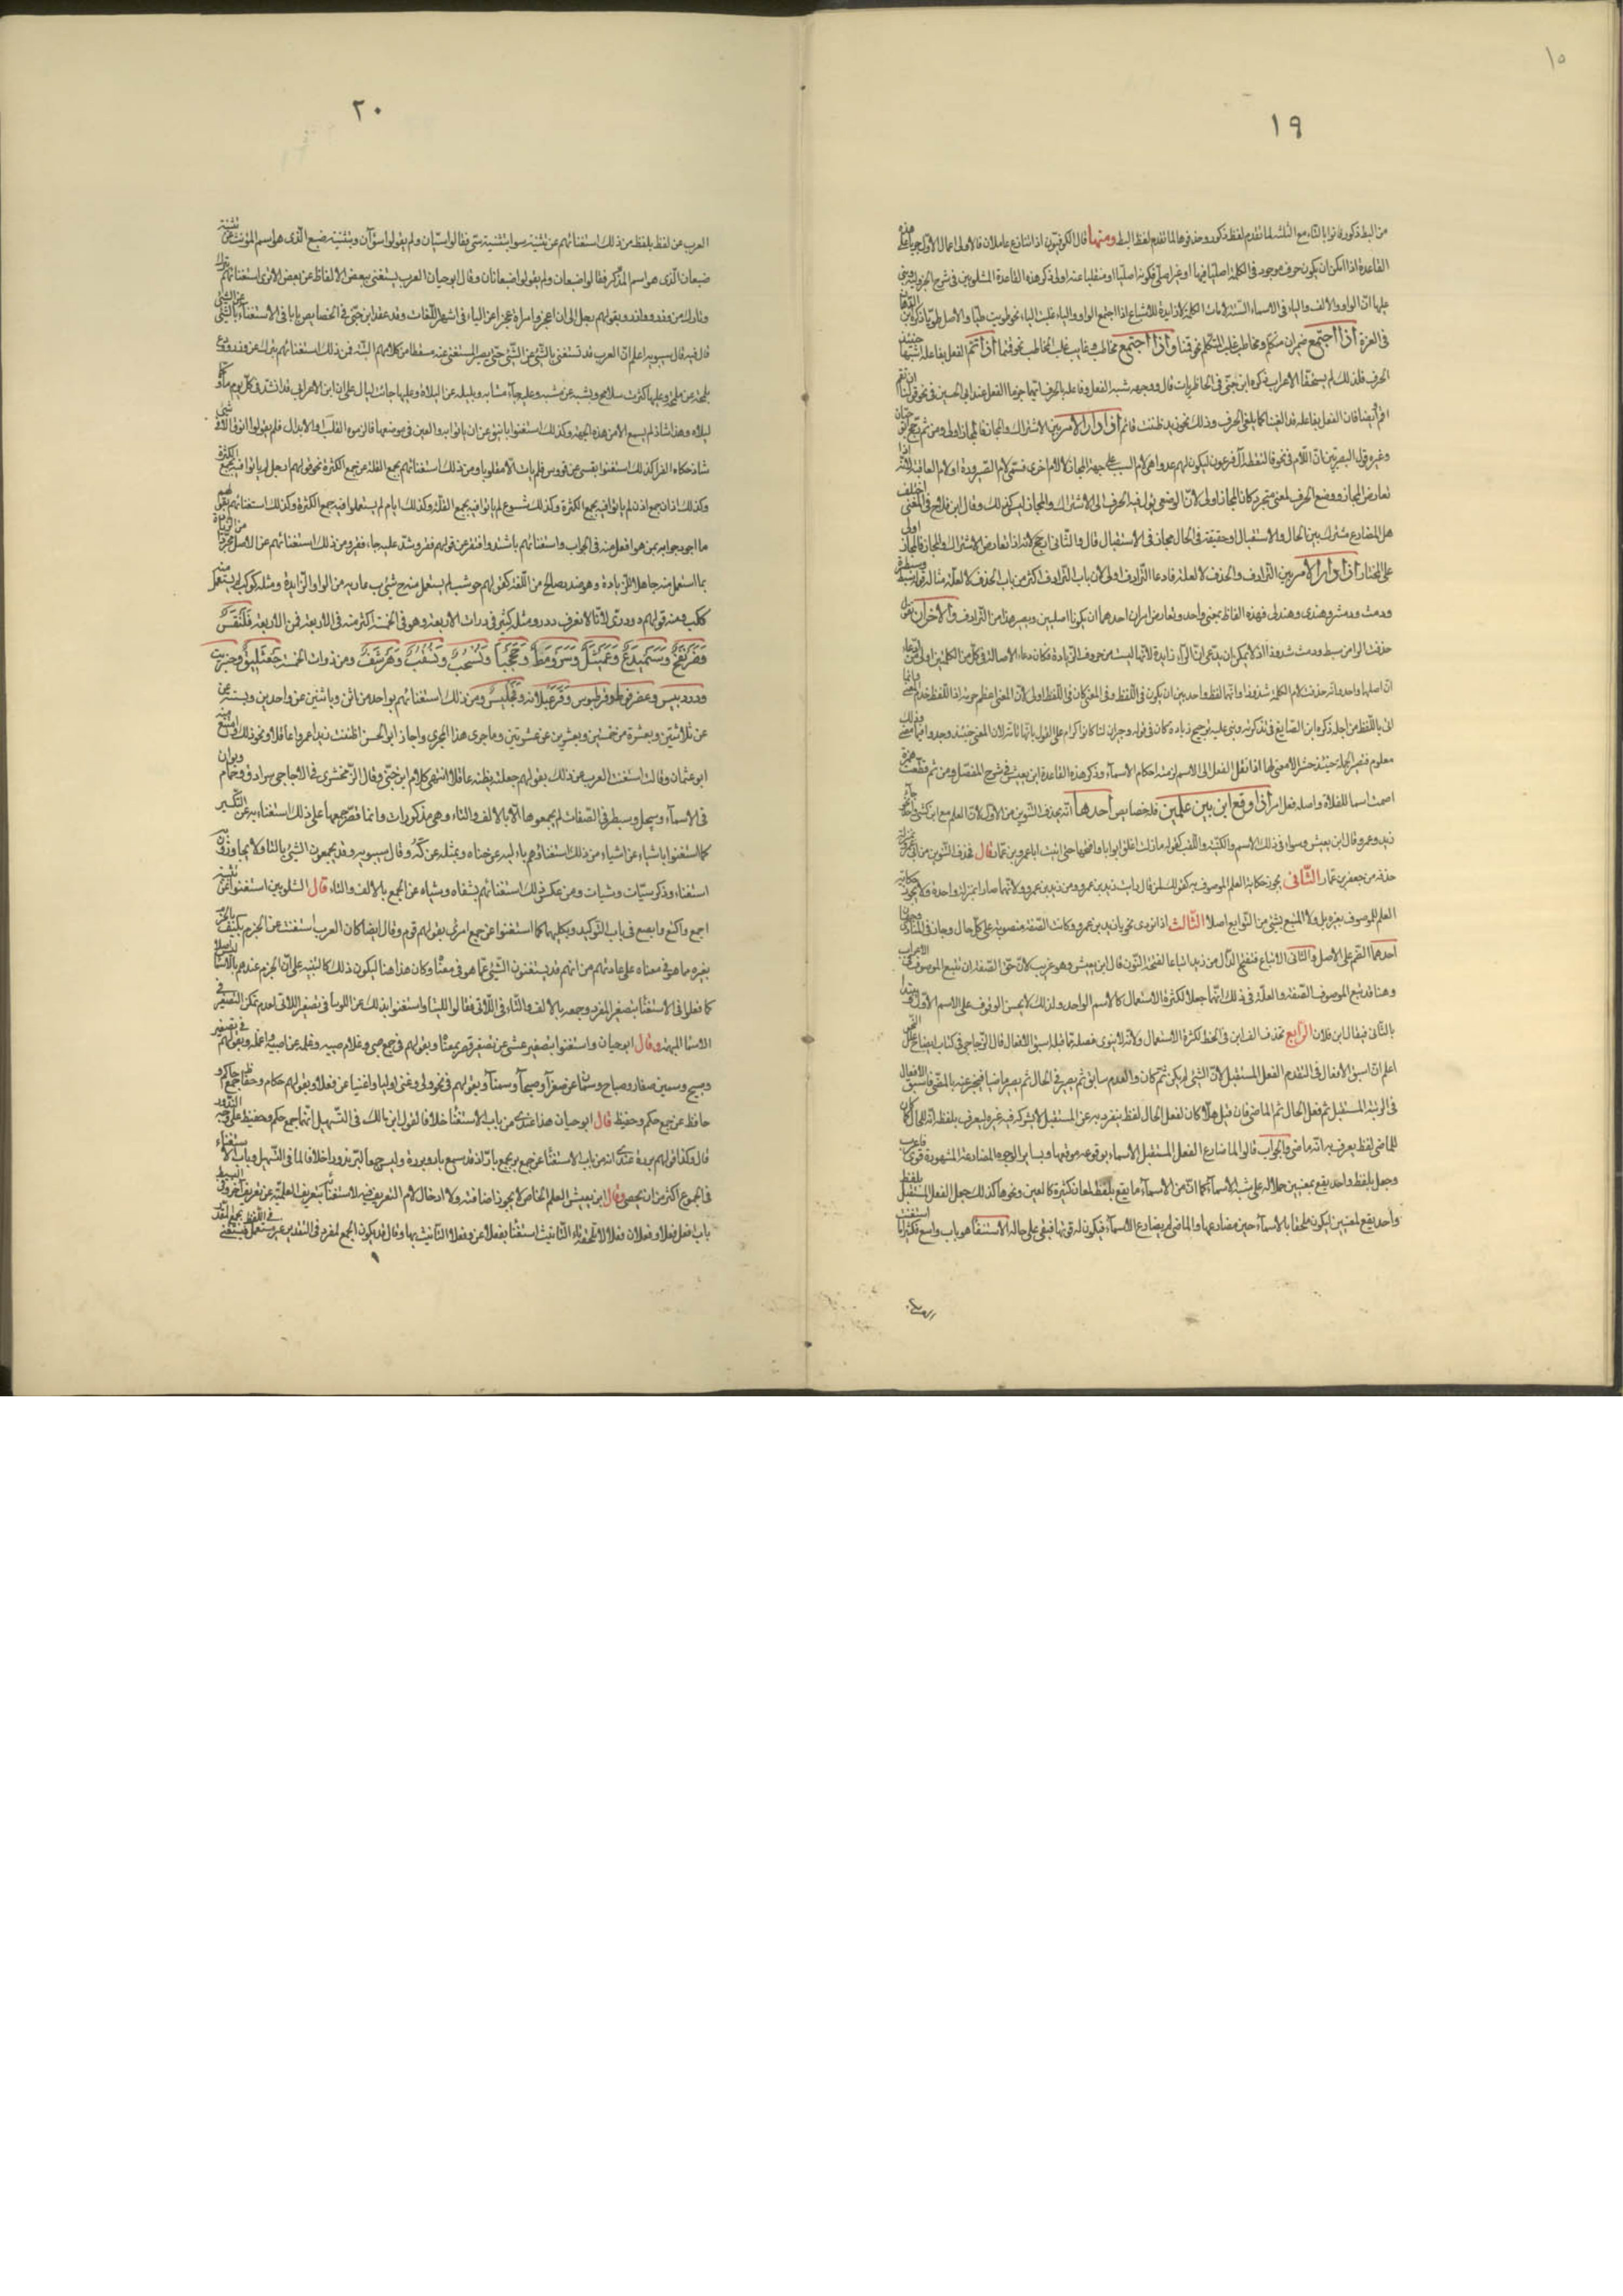 ١٥
١٩
من البط ذكور فاتوا بالتاء مع الثلثة لما تقدم لفظ ذكور وحذفوها لما تقدم لفظ البط ومنها قال الكوفيون اذا تنازع عاملان فالاولى اعمال الاول جريا على هذه
القاعدة اذا امكن ان يكون حرف موجود في الكلمة اصليا فيها او غير اصلي فكونه اصليا او منقلبا عنه اولى ذكر هذه القاعدة الشلوبين في شرح الجزولية وبنى
عليها ان الواو والالف والياء في الاسماء الستة لامات الكلمة لا زايدة للاشباع اذا اجتمع الواو والياء غلبت الياء نحو طويت طيا والاصل طويا ذكره ابن الدهان
في الغرة اذا اجتمع ضميران متكلم ومخاطب غلب المتكلم نحو قمنا واذا اجتمع مخاطب وغايب غلب المخاطب نحو قمتما اذا اتم الفعل بفاعله اشبها حينئذ
الحرف فلذلك لم يستحقا الاعراب ذكره ابن جني في الخاطريات قال ووجه شبه الفعل وفاعله بالحرف انهما جوابا الفعل عند ابي الحسين في نحو قولنا ان تقم
اقم وايضا فان الفعل بفاعله قد الغيا كما يلغى الحرف وذلك نحو زيد ظننت قائم اذا دار الامر بين الاشتراك والمجاز فالمجاز اولى ومن ثم رجح ابو حيان
وغيره قول البصريين ان اللام في نحو فالتقطه ال فرعون ليكون لهم عدوا هي لام السبب على جهة المجاز لا لام اخرى فسمى لام الصيرورة او لام العاقبة لانه اذا
تعارض المجاز ووضع الحرف لمعنى متجدد كان المجاز اولى لان الوضع يؤول فيه الحرف الى الاشتراك والمجاز ليس كذلك وقال ابن فلاح في المغني اختلف
هل المضارع مشترك بين الحال والاستقبال او حقيقة في الحال مجاز في الاستقبال قال والثاني ارجح لانه اذا تعارض الاشتراك والمجاز فالمجاز اولى
على المختار اذا دار الامر بين الترادف والحذف لا لعلة فادعاء الترادف اولى لان باب الترادف اكثر من باب الحذف لا لعلة مثاله قولهم سبط وسبطر
ودمث ودمثر وهندي وهندكي فهذه الفاظ بمعنى واحد وتعارض امران احدهما ان يكونا اصلين ويصير هذا من الترادف والاخر ان
حذفت الراء من سبط ودمث شذوذا اذ لا يمكن ان يدعى ان الراء زايدة لانها ليست من حروف الزيادة فكان دعاء الاصالة في كل من الكلمتين اولى من ادعاء
ان اصلهما واحد وانه حذفت لام الكلمة شذوذا وانها لفظ واحد بين ان يكون في اللفظ وفي المعنى كان في اللفظ اولى لان المعنى اعظم حرمة اذ اللفظ خدم المعنى وانما
اتى باللفظ من اجله ذكره ابن الصايغ في تذكرته وبنى عليه ترجيح زيادة كان في قوله وجيران لنا كانوا كرام على القول بانها تامة لان المعنى حينئذ وجدوا فيما مضى وذلك
معلوم فتصير الجملة حينئذ حشوا لا معنى لها اذا نقل الفعل الى الاسم لزمته احكام الاسماء وذكر هذه القاعدة ابن يعيش في شرح المفصل ومن ثم قطعت همزة
اصمت اسما للفلاة واصله فعل امر اذا وقع ابن بين علمين فله خصايص احدها انه يحذف التنوين من الاول لان العلم مع ابن كشيء واحد نحو جاء
زيد بن عمرو قال ابن يعيش وسواء في ذلك الاسم والكنية واللقب كقوله ما زلت اغلق ابوابا وافتحها حتى اتيت ابا عمرو بن عمار قال فحذف التنوين من ابي عمرو بمنزلة
حذفه من جعفر بن عمار الثاني يجوز حكاية العلم الموصوف به كقولك لمن قال رايت زيد بن عمرو من زيد بن عمرو لانهما صارا بمنزلة واحدة ولا يجوز حكاية
العلم الموصوف بغيره بل ولا المتبع بشيء من التوابع اصلا الثالث اذا نودى نحو يا زيد بن عمرو وكانت الصفة منصوبة على كل حال وجاز في المنادى وجهان
احدهما الضم على الاصل والثاني الاتباع فتفتح الدال من زيد اتباعا لفتحة النون قال ابن يعيش وهو غريب لان حق الصفة ان تتبع الموصوف في الاعراب
وهنا قد تبع الموصوف الصفة والعلة في ذلك انهما جعلا لكثرة الاستعمال كالاسم الواحد ولذلك لا يحسن الوقوف على الاسم الاول ويبتدا
بالثاني فيقال ابن فلان الرابع تحذف الف ابن في الخط لكثرة الاستعمال ولانه لا ينوى فصله مما قبله اسبق الافعال قال الزجاجي في كتاب ايضاح علل النحو
اعلم ان اسبق الافعال في التقدم الفعل المستقبل لان الشيء لم يكن ثم كان والعدم سابق ثم يصير في الحال ثم يصير ماضيا فيخبر عنه بالمضي فاسبق الافعال
في الرتبة المستقبل ثم فعل الحال ثم الماضي فان قيل هلا كان لفعل الحال لفظ ينفرد به عن المستقبل لا يشركه فيه غيره ليعرف بلفظه انه للحال كما كان
للماضي لفظ يعرف به انه ماض والجواب قالوا لما ضارع الفعل المستقبل الاسماء بوقوعه موقعها وبساير الوجوه المضارعة المشهورة قوي فاعرب
وجعل بلفظ واحد يقع بمعنيين حملا له على شبه الاسماء كما ان من الاسماء ما يقع بلفظه لمعان كثيرة كالعين ونحوها كذلك جعل الفعل المستقبل بلفظ
واحد يقع لمعنيين ليكون ملحقا بالاسماء حين ضارعها والماضي لم يضارع الاسماء فيكون له قوتها فبقي على حاله الاستغناء هو باب واسع فكثيرا ما استغنت
العرب
٢٠
العرب عن لفظ بلفظ من ذلك استغنائهم عن تثنية سواء بتثنية سي فقالوا سيان ولم يقولوا سوآن وبتثنية ضبع الذي هو اسم المؤنث عن تثنية
ضبعان الذي هو اسم المذكر فقالوا ضبعان ولم يقولوا ضبعانان وقال ابو حيان العرب يستغني ببعض الالفاظ عن بعض الا ترى استغنائهم بترك
وتارك عن وذر ووادر وبقولهم رجل الى ان اعجز وامراة عجزا عن الياء في اشهر اللغات وقد عقد ابن جني في الخصايص بابا في الاستغناء بالشيء عن الشيء
قال فيه قال سيبويه اعلم ان العرب قد تستغني بالشيء عن الشيء حتى يصير المستغنى عنه مسقطا من كلامهم البتة فمن ذلك استغنائهم بترك عن وذر وودع
بلمحة عن ملمحة وعليها كسرت ملامح وبشبه عن مشبه وعليه جاء مشابه وبليلة عن ليلاة وعليها جائت ليال على ان ابن الاعرابي قد انشد في كل يوم ما وكل
ليلاه وهذا شاذ لم يسمع الا من هذه الجهة وكذلك استغنوا باينق عن ان ياتوا به والعين في موضعها فالزموه القلب والابدال فلم يقولوا انوق الا في شيء
شاذ حكاه الفرا كذلك استغنوا بقسي عن قووس فلم يات الا مقلوبا ومن ذلك استغنائهم بجمع القلة عن جمع الكثرة نحو قولهم ارجل لم ياتوا فيه بجمع الكثرة
وكذلك اذان جمع اذن لم ياتوا فيه بجمع الكثرة وكذلك شسوع لم ياتوا فيه بجمع القلة وكذلك ايام لم يستعملوا فيه جمع الكثرة وكذلك استغنائهم بقولهم
ما اجود جوابه عن هو افعل منه في الجواب واستغنائهم باشتد وافتقر عن قولهم فقر وشد عليه جاء فقير ومن ذلك استغنائهم عن الاصل مجردا من الزيادة
بما استعمل منه حاملا للزيادة وهو صدر صالح من اللغة كقولهم حوشب لم يستعمل منه حشب عارية من الواو الزايدة ومثله كوكب لم يستعمل منه
ككب ومنه قولهم دودري لانا لا نعرف ددر ومثله كثير في ذوات الاربعة وهو في الخمسة اكثر منه في الاربعة فمن الاربعة فلنقس
وصرنفح وسميدع وعميثل وسرومط وجحجبا وقسحب وقسقب وهرشف ومن ذوات الخمسة جعفليق وحنبريت
ودردبيس وعضرفوط وقرطبوس وقرعبلانة وفنجليس ومن ذلك استغنائهم بواحد عن اثن وباثنين عن واحدين وبستة عن
عن ثلاثتين وبعشرة عن خمستين وبعشرين عن عشرتين وما جرى هذا المجرى واجاز ابو الحسن اظننت زيدا عمروا عاقلا ونحو ذلك وامتنع منه
ابو عثمان وقالت استغنت العرب عن ذلك بقولهم جعلته يظنه عاقلا انتهى كلام ابن جني وقال الزمخشري في الاحاجي سرادق وحمام وبوان
في الاسماء وسبحل وسبطر في الصفات لم يجمعوها الا بالالف والتاء وهي مذكورات وانما قصر جمعها على ذلك استغناء به عن التكسير
كما استغنوا باشياء عن اشياء من ذلك استغناؤهم باءليه عن حتاه وبمثله عن كه وقال سيبويه وقد يجمعون الشيء بالتاء ولا يجاوزون به
استغناء وذكر سيات وشيات ومن عكس ذلك استغنائهم بشفاه وشياه عن الجمع بالالف والتاء قال الشلوبين استغنوا عن تثنية
اجمع واكتع وابصع في باب التوكيد وبكليهما كما استغنوا عن جمع امرئ بقولهم قوم وقال ايضا كان العرب استغنت عن الجزم بكيف بالجزم
بغيره ما هو في معناه على عادتهم من انهم قد يستغنون الشيء عما هو في معناه وكان هذا هنا ليكون ذلك كالتنبيه على ان الجزم عندهم بالاسماء ليس اصلا
كما فعلوا في الاستغناء بتصغير المفرد وجمعه بالالف والتاء في اللاتي فقالوا اللتيا واستغنوا بذلك عن اللويتا في تصغير اللاتي لعدم تمكن التصغير في
الاسماء المبهمة وقال ابو حيان واستغنوا بتصغير عشي عن تصغير قصر بمعناه وبقولهم في جمع صبي وغلام صبية وغلمة عن اصبية واغلمة وبقولهم في تصغير
وصبيح وسمين صغار وصباح وسمان عن صغراء وصبحاء وسمناء وبقولهم في نحو ولي وغني اولياء واغنياء عن فعلاء وبقولهم حكام وحفاظ جمع حاكم و
حافظ عن جمع حكم وحفيظ قال ابو حيان هذا عندي من باب الاستغناء خلافا لقول ابن مالك في التسهيل انهما جمع حكم وحفيظ على وجه الندور
قال وكذا قولهم بررة عندي انه من باب الاستغناء عن جمع بر بجمع بار اذ قد سمع بار وبررة وليس جمعا لبر ندورا خلافا لما في التسهيل وباب الاستغناء
في الجموع اكثر من ان يحصى وقال ابن يعيش العلم الخاص لا يجوز اضافته ولا ادخال لام التعريف فيه لاستغنائه بتعريف العلمية عن تعريف اخر وفي البسيط
باب فعل فعلاء وفعلان فعلا لا تلحقه تاء التانيث استغناء بفعلاء عن وفعلا التانيث بها وقال قد يكون الجمع لمفرد في التقدير غير مستعمل فيستغني في اللفظ بجمع المقدر